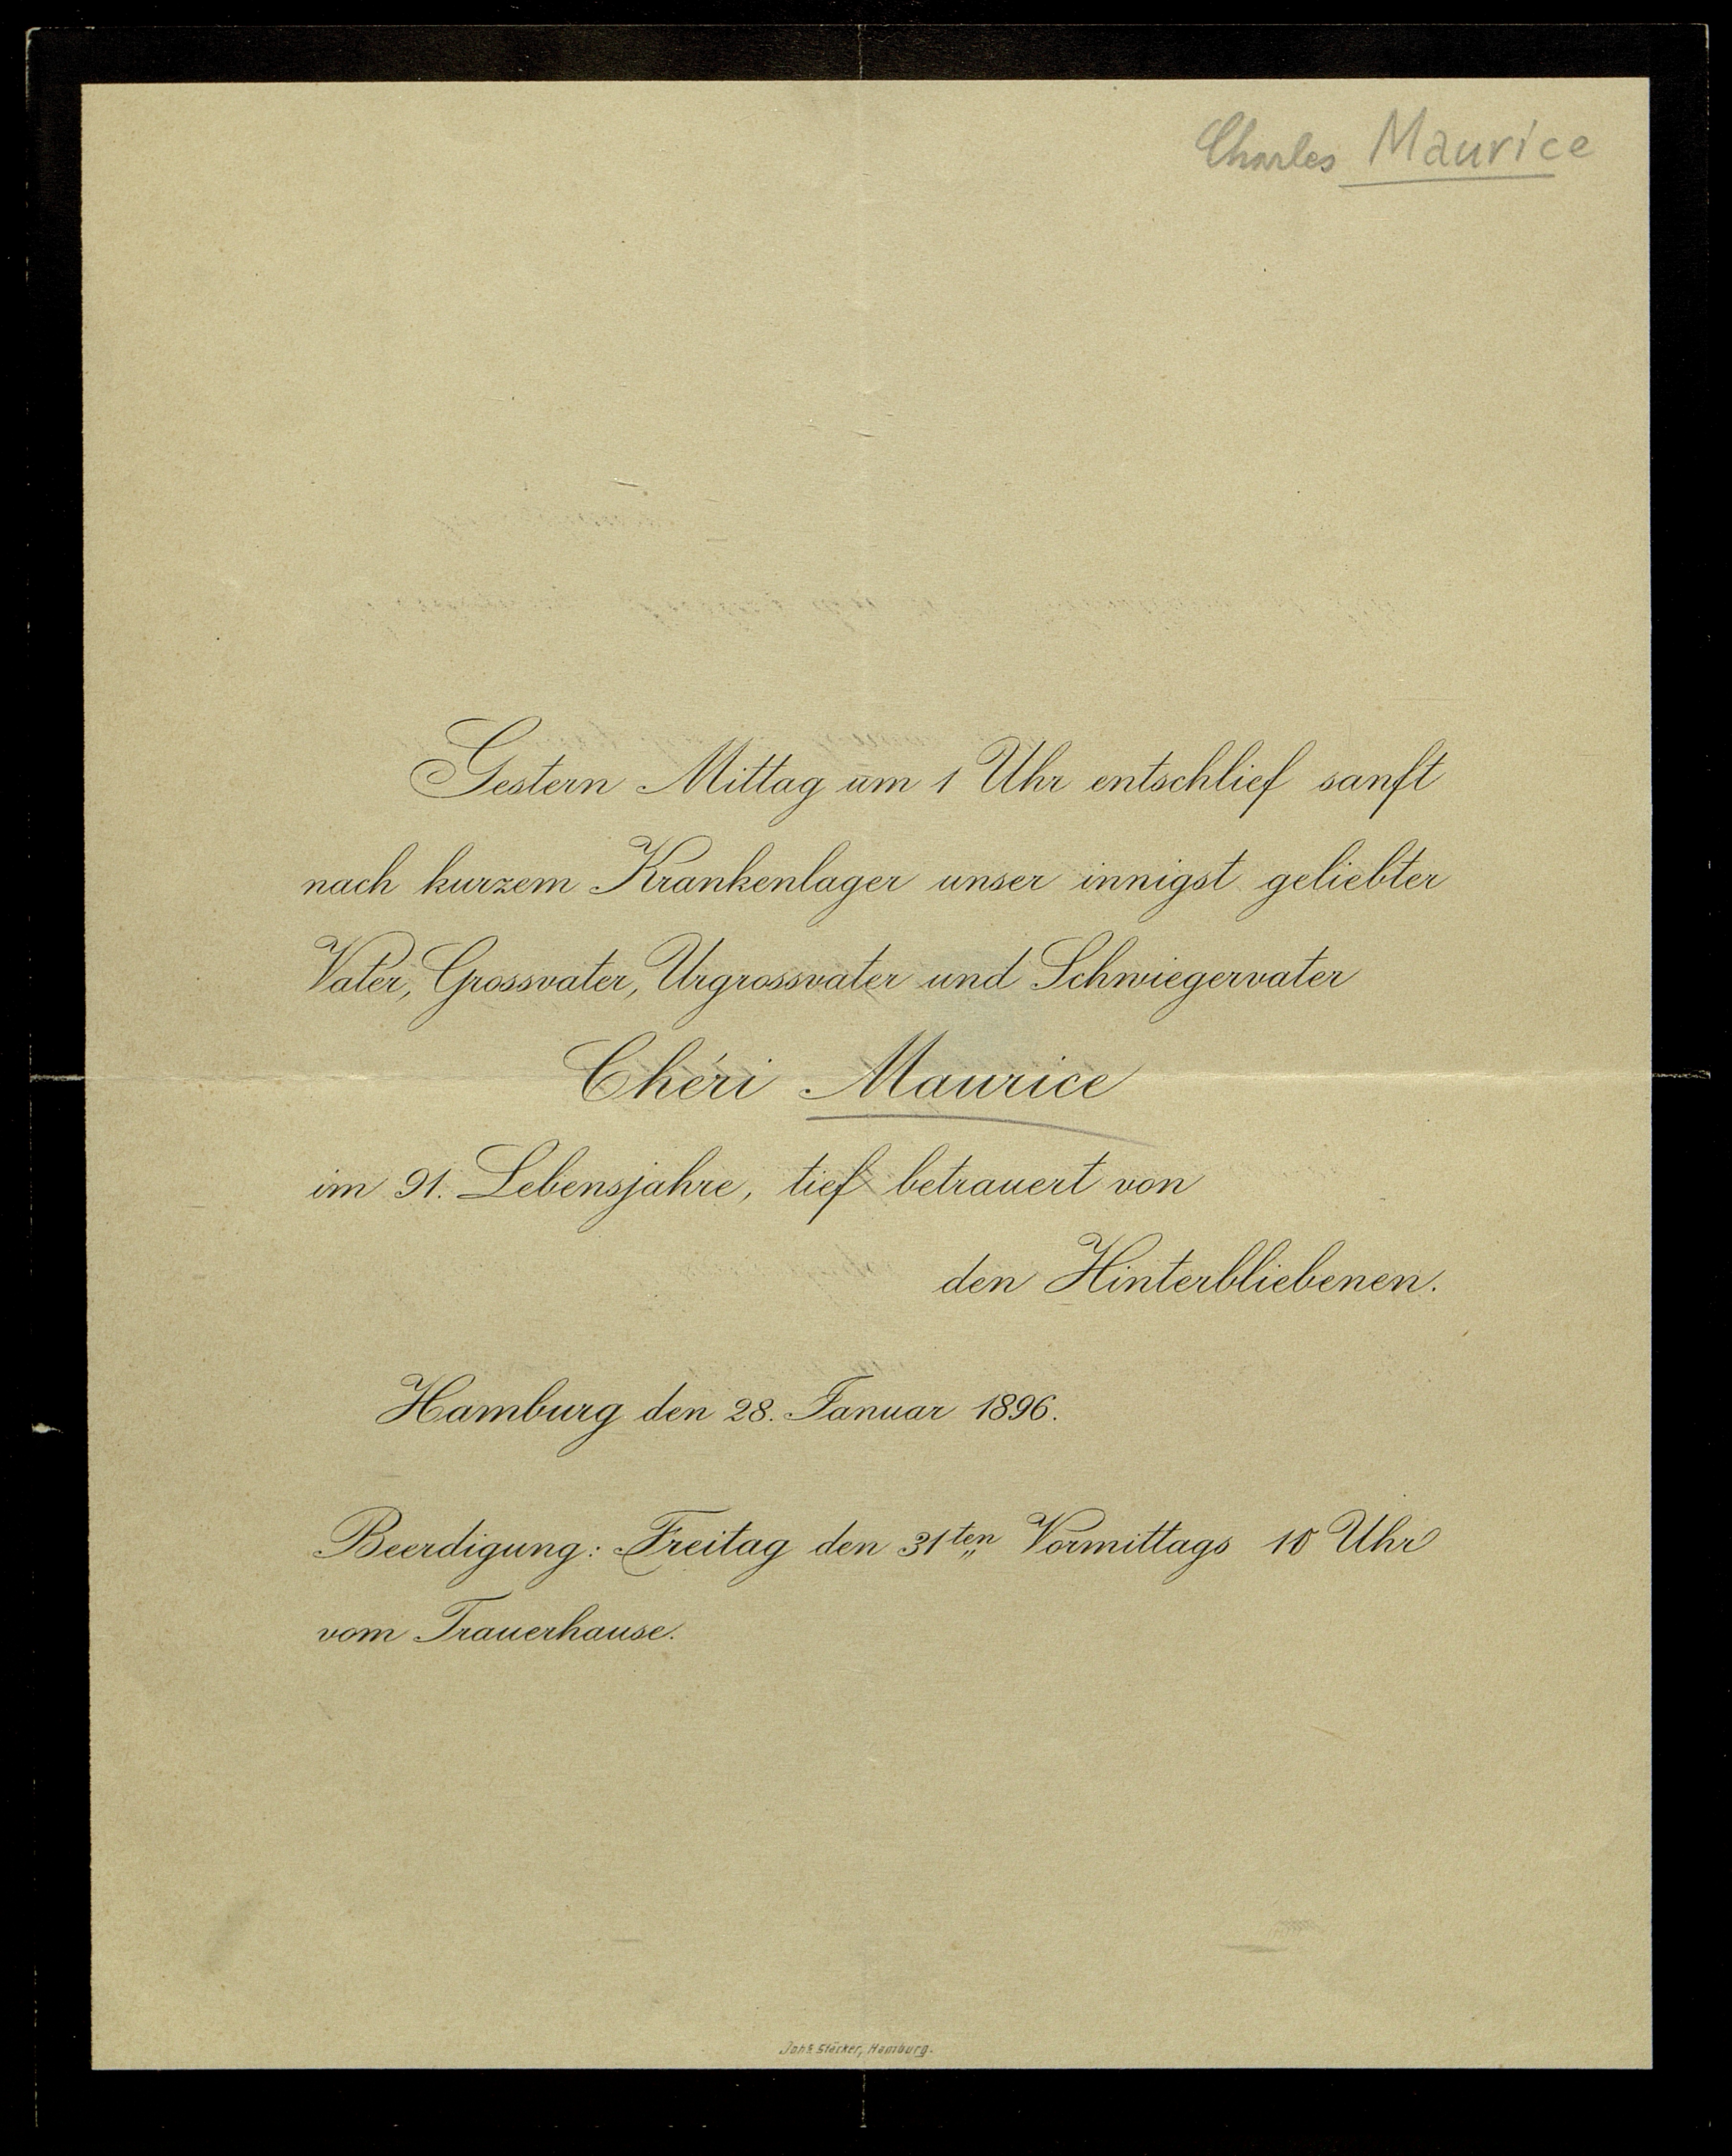 Charles Maurice
Gestern Mittag um 1 Uhr entschlief sanft
nach kurzem Krankenlager unser innigst geliebter
Vater, Grossvater, Urgrossvater und Schwiegervater
Chéri Maurice
im 91. Lebensjahre, tief betrauert von
den Hinterbliebenen.
Hamburg den 28. Januar 1896.
Beerdigung: Freitag den 31ten Vormittags 10 Uhr
vom Trauerhause.
Johs. Stäcker, Hamburg.